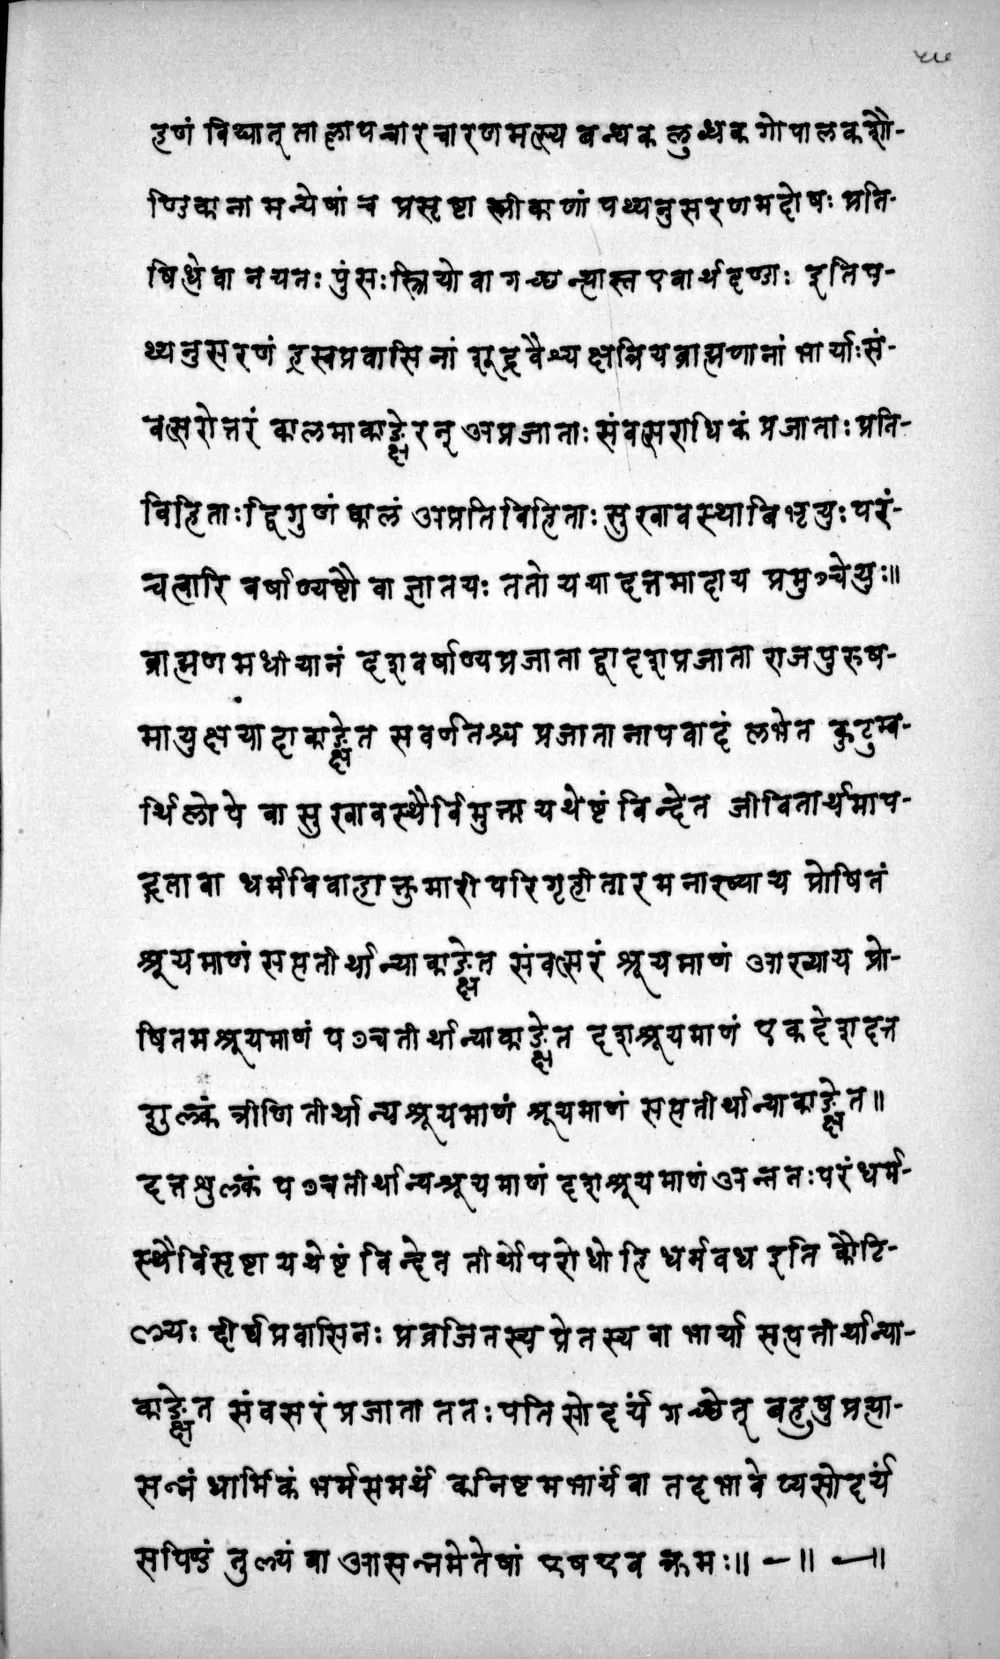 हणं विद्यात् तालापचारचारणमत्स्यबन्धकलुब्धकगोपालकशौ-
ण्डिकानामन्येषां च प्रसृष्टास्त्रीकाणां पथ्यनुसरणमदोषः प्रति-
षिधे वा नयतः पुंसः स्त्रियो वा गच्छन्त्यास्त एवार्थदण्डाः इति प-
थ्यनुसरणं ह्रस्वप्रवासिनां शूद्रवैश्यक्षत्रियब्राह्मणानां भार्याः सं-
वत्सरोत्तरं कालमाकाङ्क्षेरन् अप्रजाताः संवत्सराधिकं प्रजाताः प्रति-
विहिताः द्विगुणं कालं अप्रतिविहिताः सुखावस्था बिभृयुः परं-
चत्वारि वर्षाण्यष्टौ वा ज्ञातयः ततो यथादत्तमादाय प्रमुञ्चेयुः॥
ब्राह्मणमधीयानं दशवर्षाण्यप्रजाता द्वादशप्रजाता राजपुरुष-
मायुक्षयादाकाङ्क्षेत सवर्णतश्च प्रजाता नापवादं लभेत कुटुम्ब-
र्धिलोपे वा सुखावस्थैर्विमुक्ता यथेष्टं विन्देत जीवितार्थमाप-
द्गता वा धर्मविवाहात्कुमारी परिगृहीतारमनाख्याय प्रोषितं
श्रूयमाणं सप्ततीर्थान्याकाङ्क्षेत संवत्सरं श्रूयमाणं आख्याय प्रो-
षितमश्रूयमाणं पञ्चतीर्थान्याकाङ्क्षेत दशश्रूयमाणं एकदेशदत्त
शुल्कं त्रीणि तीर्थान्यश्रूयमाणं श्रूयमाणं सप्ततीर्थान्याकाङ्क्षेत॥
दत्तशुल्कं पञ्चतीर्थान्यश्रूयमाणं दशश्रूयमाणं अन्ततः परं धर्म-
स्थैर्विसृष्टा यथेष्टं विन्देत तीर्थोपरोधो हि धर्मवध इति कौटि-
ल्यः दीर्घप्रवासिनः प्रव्रजितस्य प्रेतस्य वा भार्या सप्ततीर्थान्या-
काङ्क्षेत संवसरं प्रजाता ततः पतिसोदर्यं गच्छेत् बहुषु प्रत्या-
सन्नं धार्मिकं भर्मसमर्थं कनिष्टमभार्यं वा तदभावेप्यसोदर्यं
सपिण्डं तुल्यं वा आसन्नमेतेषां एष एव क्रमः॥ — ॥ — ॥